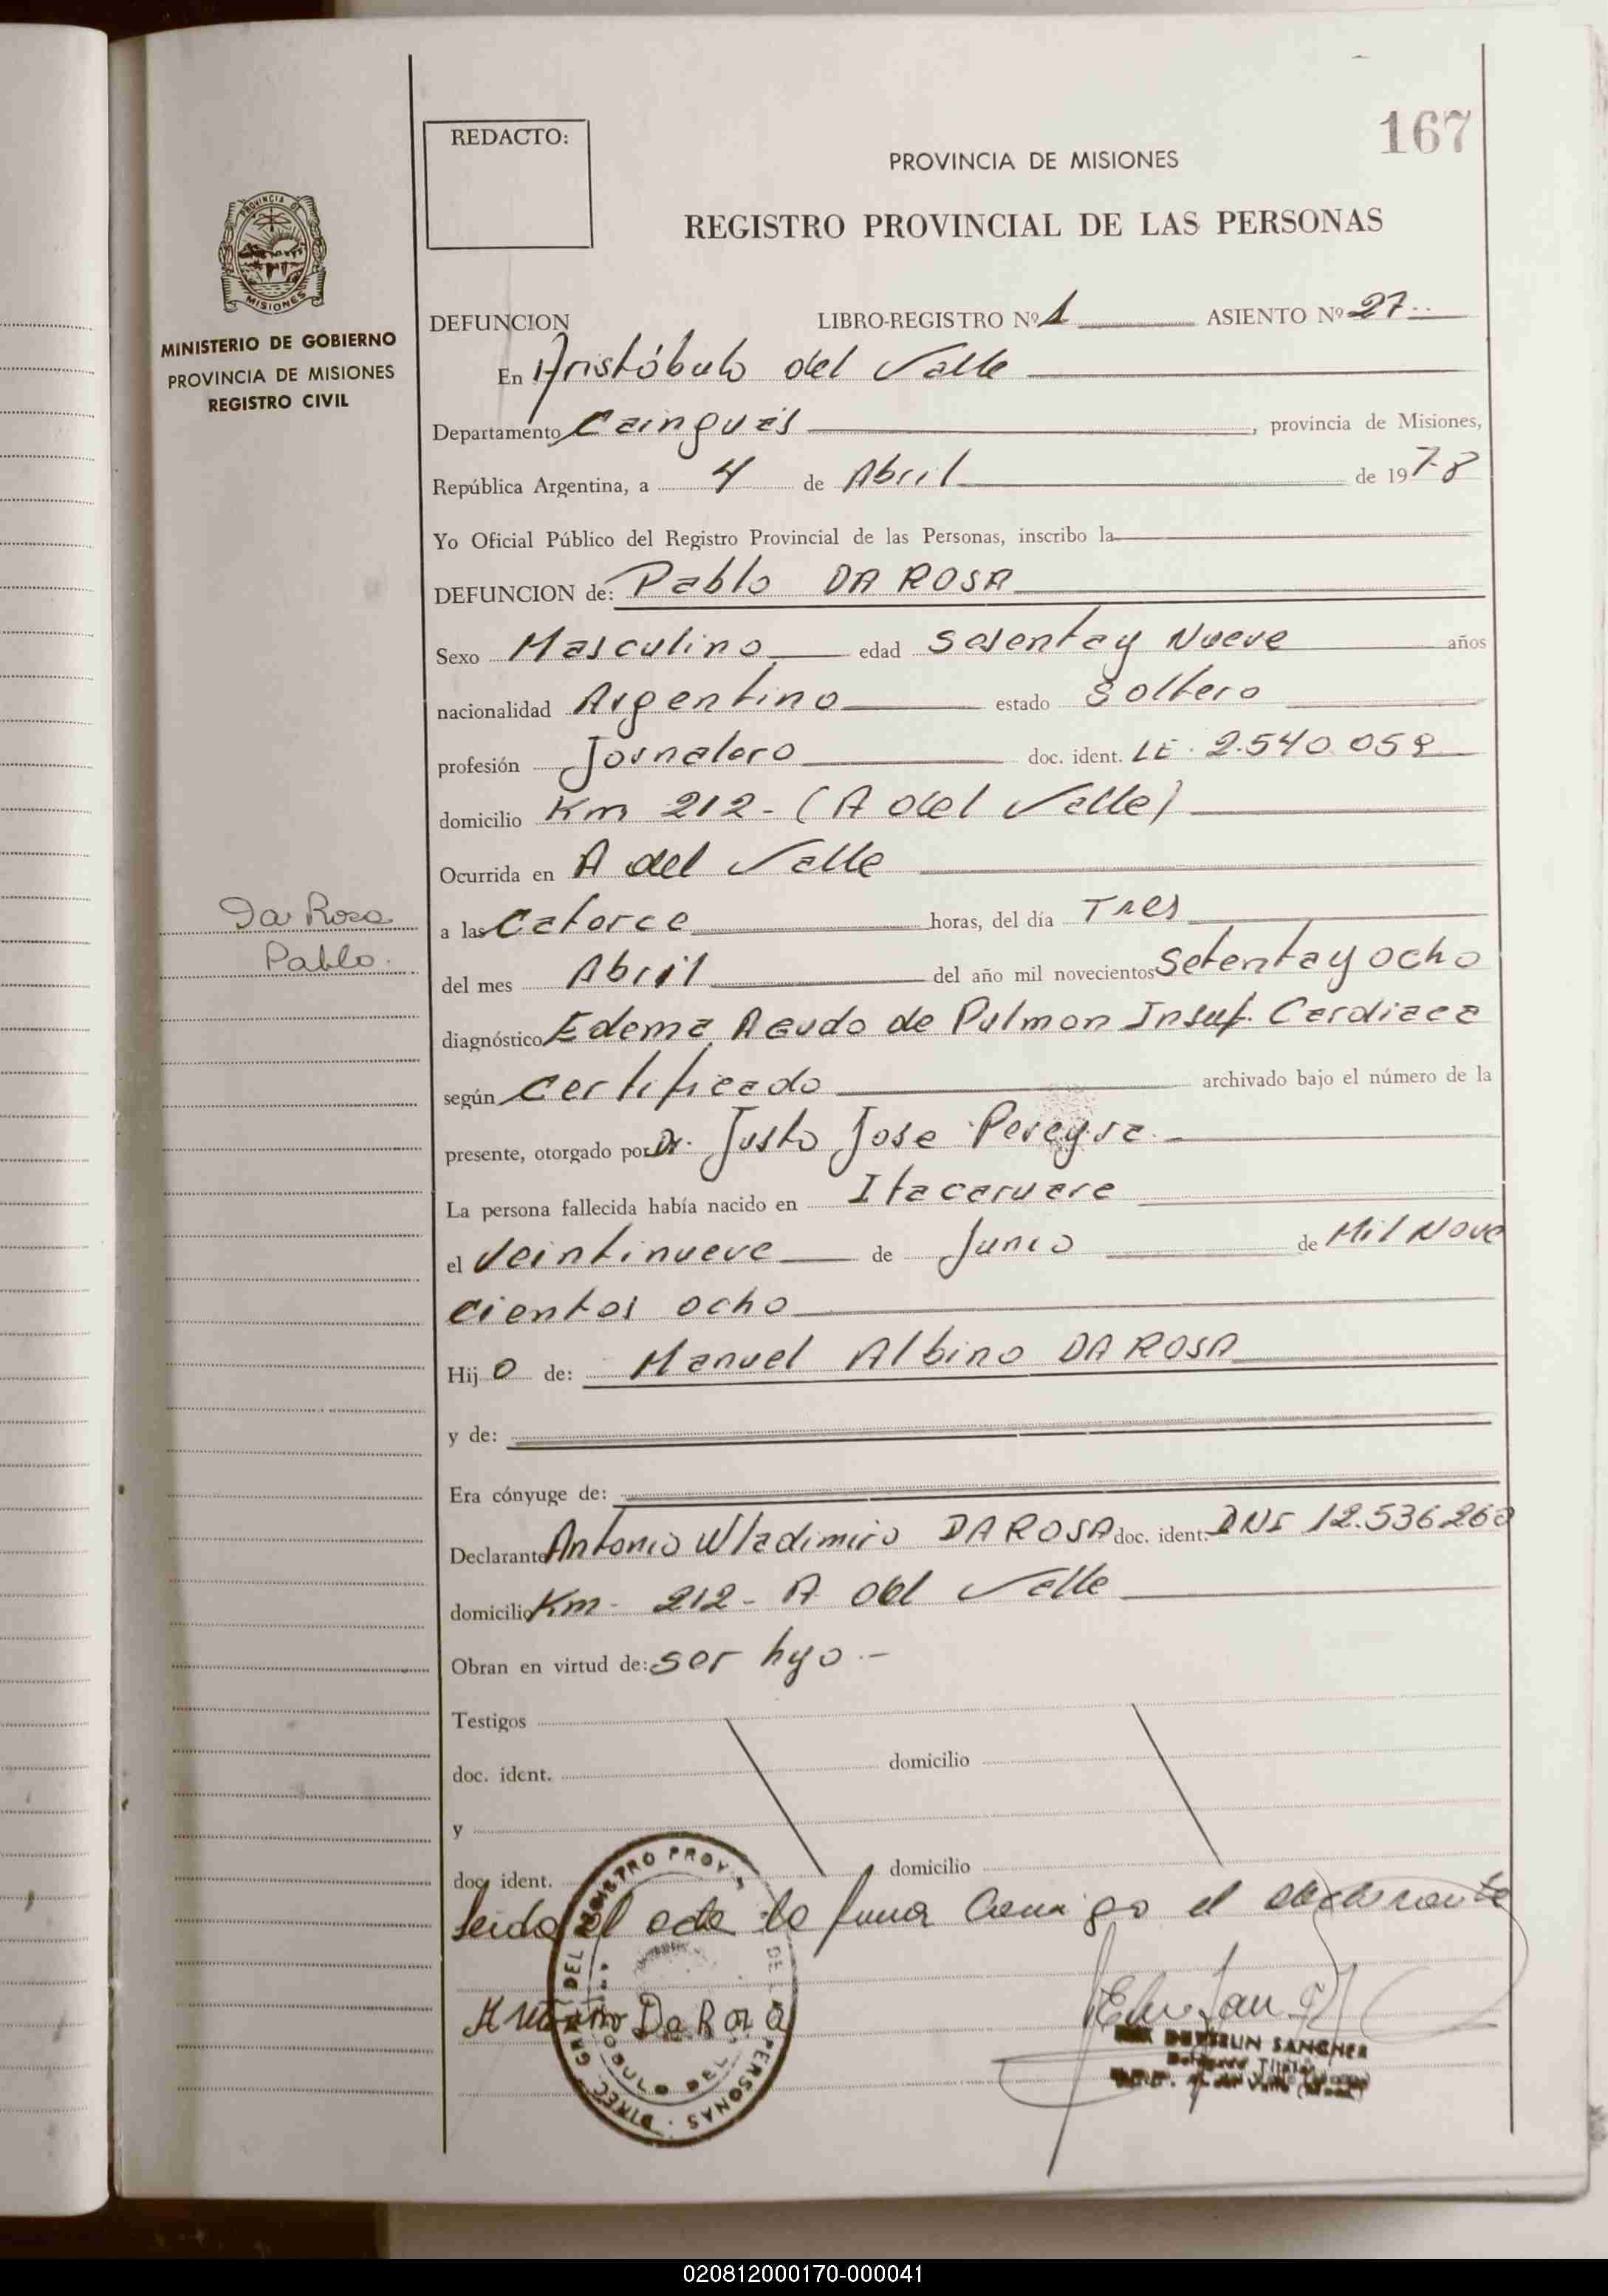 167
REDACTO:
PROVINCIA DE MISIONES
REGISTRO PROVINCIAL DE LAS PERSONAS
PROVINCIA DE
MISIONES
MINISTERIO DE GOBIERNO
PROVINCIA DE MISIONES
REGISTRO CIVIL
DEFUNCION LIBRO-REGISTRO Nº 1 ASIENTO Nº 27
En Aristóbulo del Valle
Departamento Cainguás, provincia de Misiones,
República Argentina, a 4 de Abril de 1978
Yo Oficial Público del Registro Provincial de las Personas, inscribo la
DEFUNCION de: Pablo DA ROSA
Sexo Masculino edad Sesenta y Nueve años
nacionalidad Argentino estado Soltero
profesión Jornalero doc. ident. LE. 2.540.059
domicilio Km 212- (A del Valle)
Ocurrida en A del Valle
a las Catorce horas, del día Tres
del mes Abril del año mil novecientos Setenta y ocho
diagnóstico Edema Agudo de Pulmon Insuf. Cardiaca
según Certificado archivado bajo el número de la
presente, otorgado por Dr. Justo Jose Pereyra.-
La persona fallecida había nacido en Itacaruare
el Veintinueve de Junio de Mil Nove
cientos ocho
Hijo de: Manuel Albino DA ROSA
y de:
Era cónyuge de:
Declarante Antonio Wladimiro DA ROSA doc. ident. DNI 12.536.260
domicilio Km- 212- A del Valle
Obran en virtud de: ser hijo.-
Testigos
doc. ident. domicilio
y
doc. ident. domicilio
Leida el acta la firma conmigo el declarante
Antonio Da Roza
Da Rosa
Pablo.
DIREC. GRAL. DEL REGISTRO PROV. DE PERSONAS
SANCHEZ
Titular
020812000170-000041